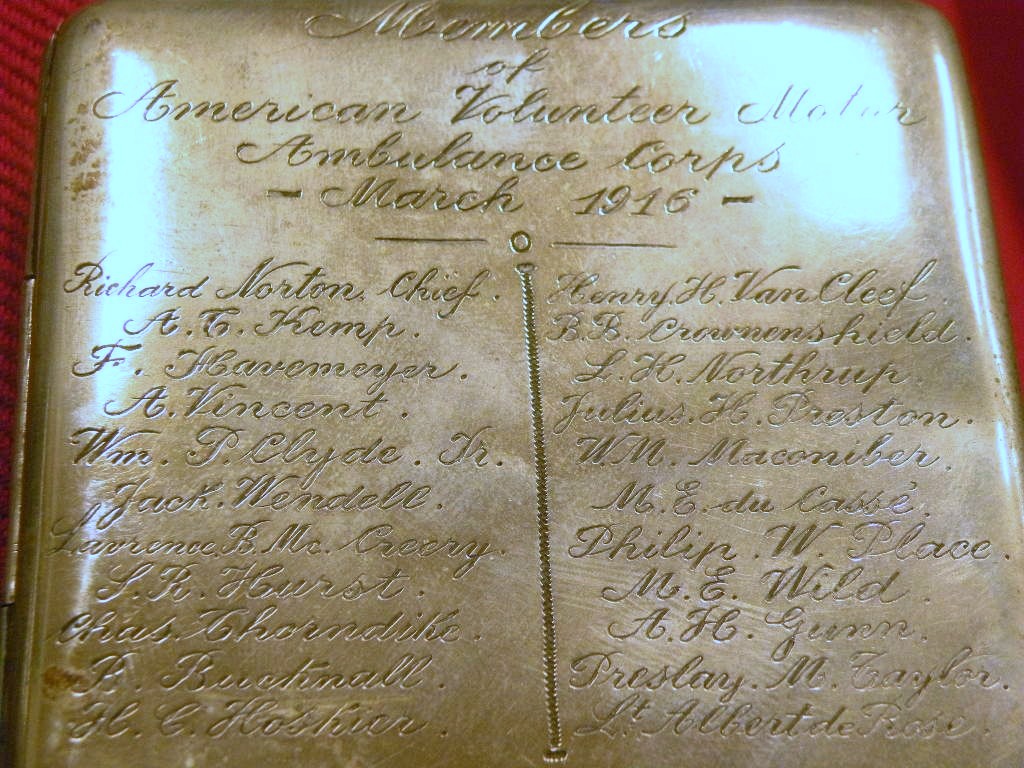 Members
of
American Volunteer Motor
Ambulance Corps
- March 1916 -
Richard Norton, Chief.
A. T. Kemp.
F. Havemeyer.
A. Vincent.
Wm. P. Clyde. Jr.
Jack. Wendell.
Lawrence. B. Mc. Creery.
S. R. Hurst.
Chas. Thorndike.
B. Bucknall.
H. C. Hoskier.
Henry. H. Van Cleef.
B. B. Crownenshield.
L. H. Northrup.
Julius. H. Preston.
W. M. Maconiber.
M. E. du Cassé.
Philip. W. Place.
M. E. Wild.
A. H. Gunn.
Preslay. M. Taylor.
Lt Albert de Rose.